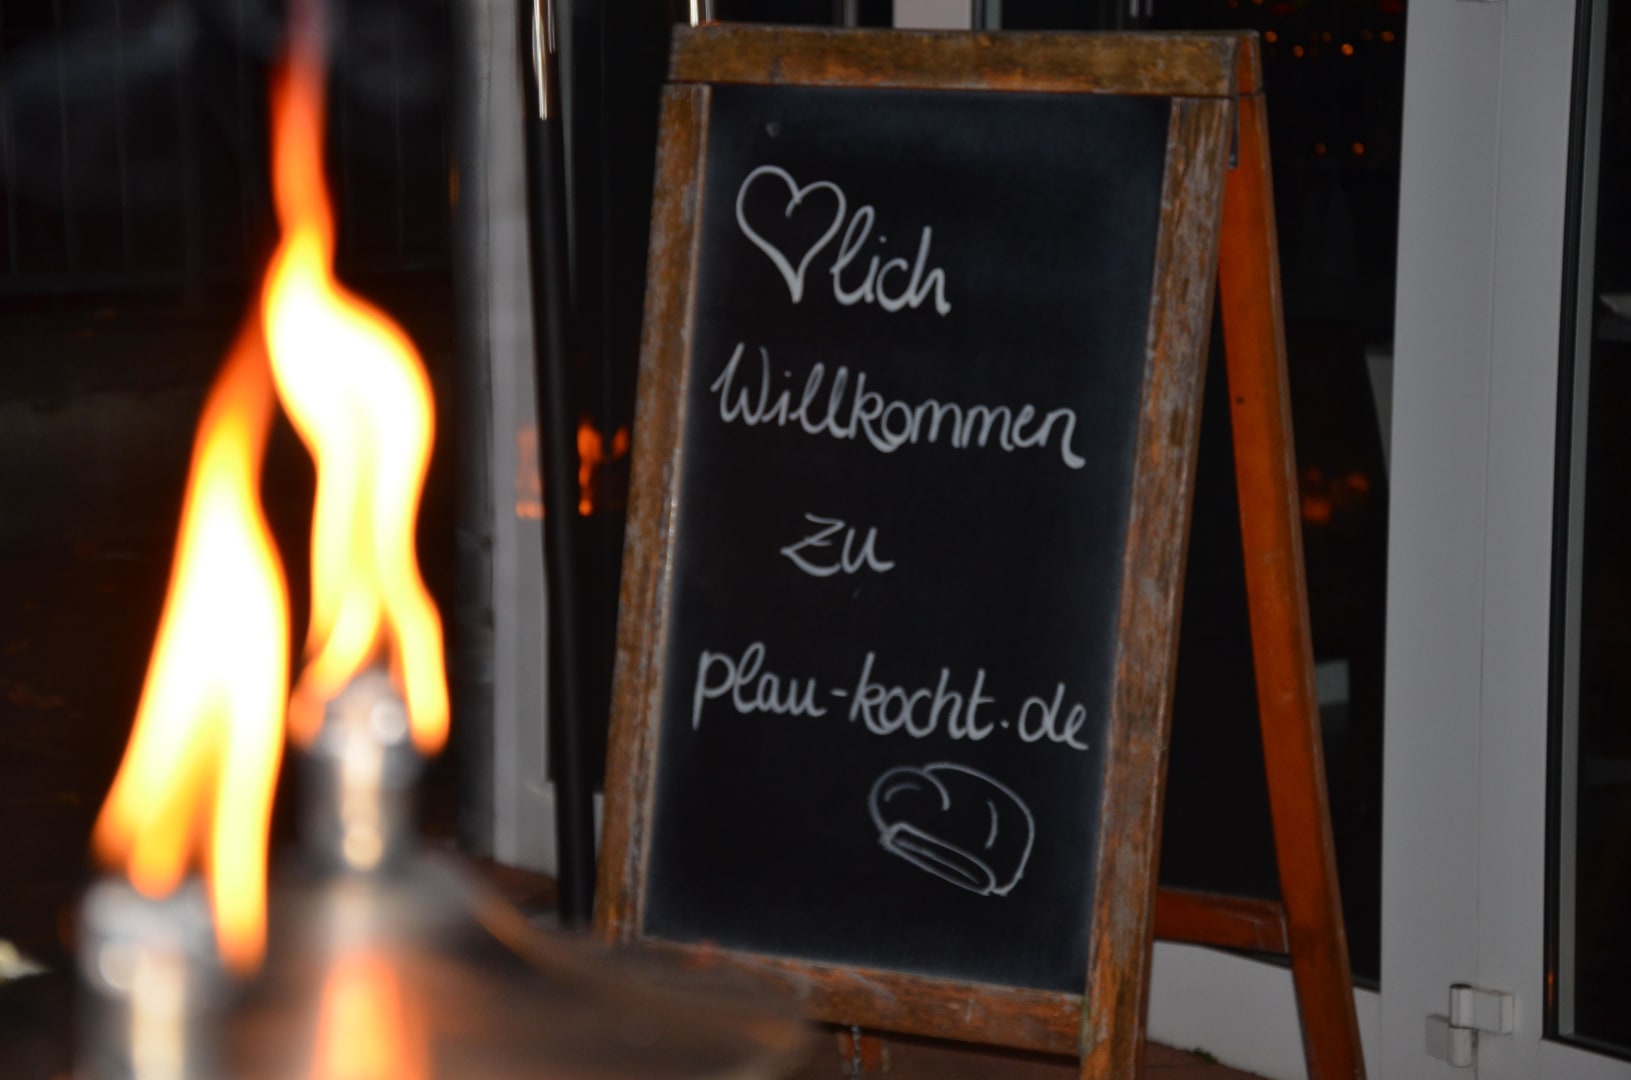 ♡lich
Willkommen
zu
plau-kocht.de